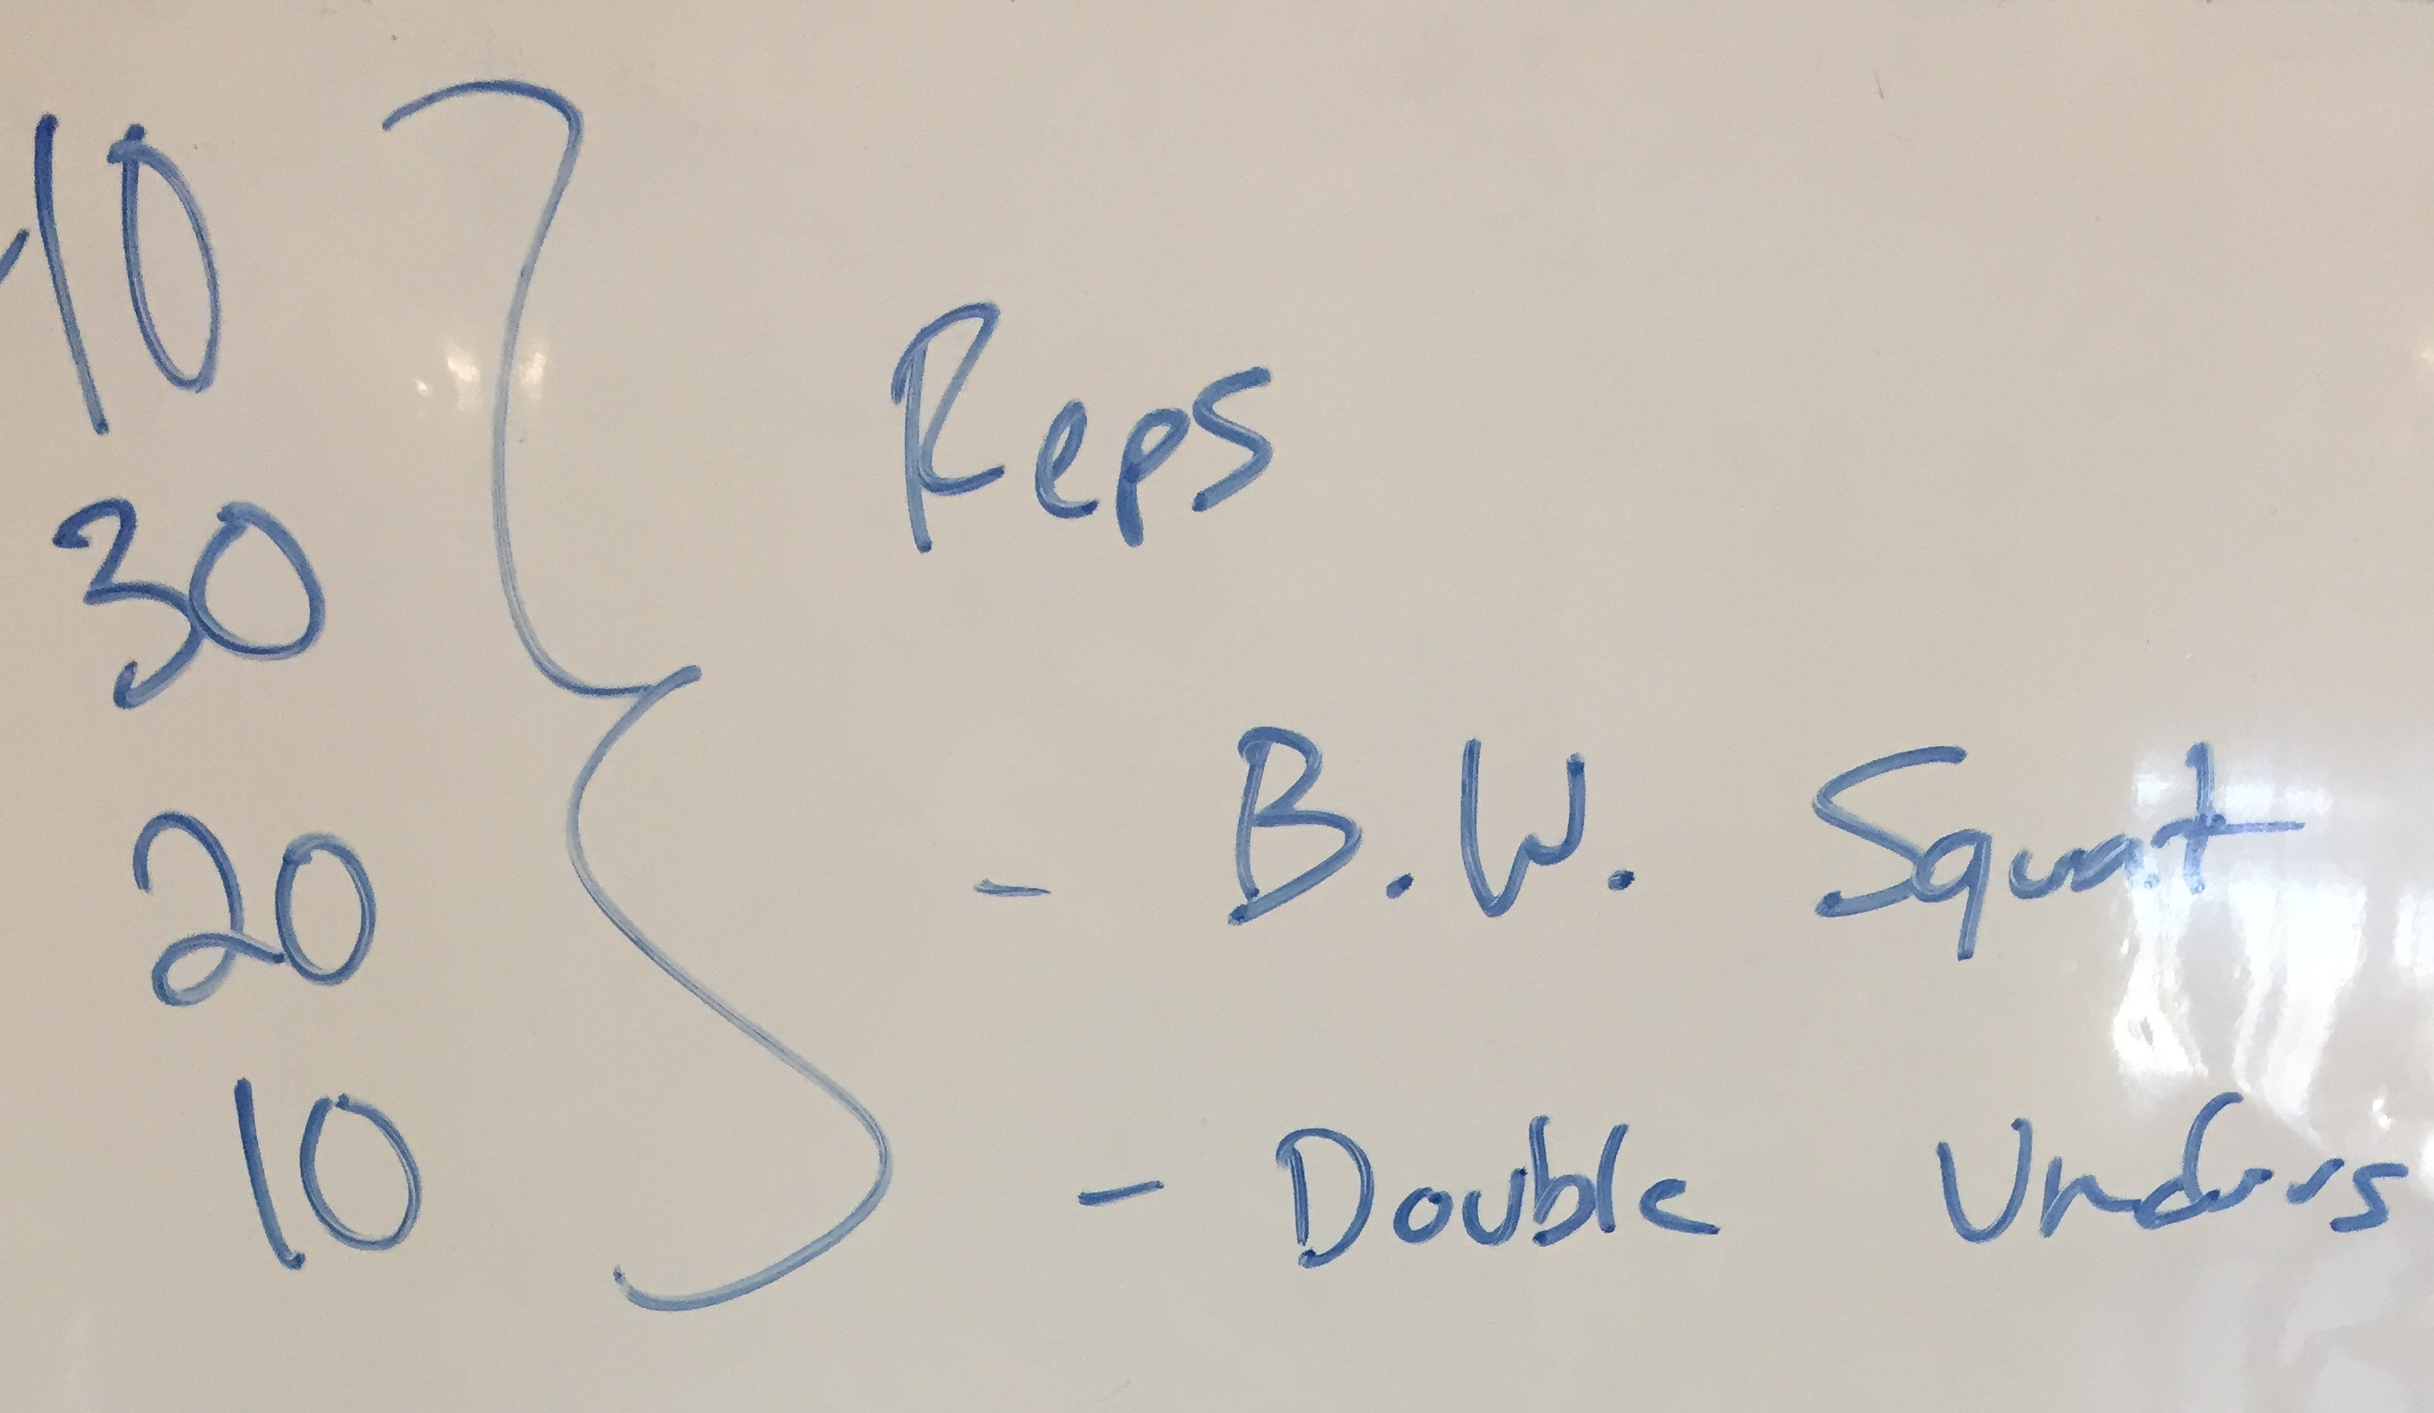 40
30
20
10
Reps
- B.W. Squat
- Double Unders